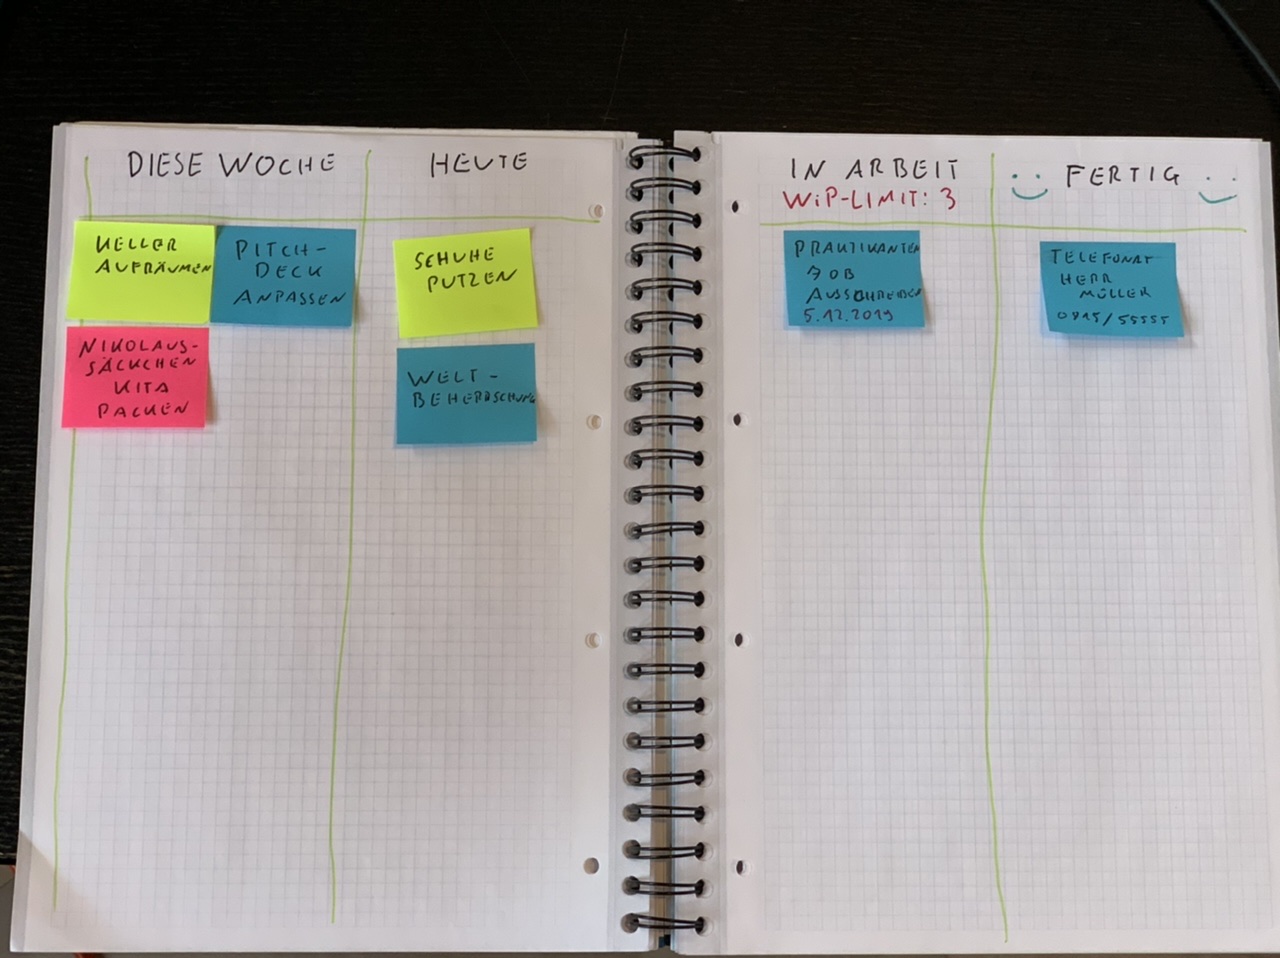 DIESE WOCHE
HEUTE
IN ARBEIT
WiP-LIMIT: 3
FERTIG
KELLER
AUFRÄUMEN
PITCH-
DECK
ANPASSEN
NIKOLAUS-
SÄCKCHEN
KITA
PACKEN
SCHUHE
PUTZEN
WELT-
BEHERRSCHUNG
PRAKTIKANTEN
JOB
AUSSCHREIBEN
5.12.2019
TELEFONAT
HERR
MÜLLER
0815/55555